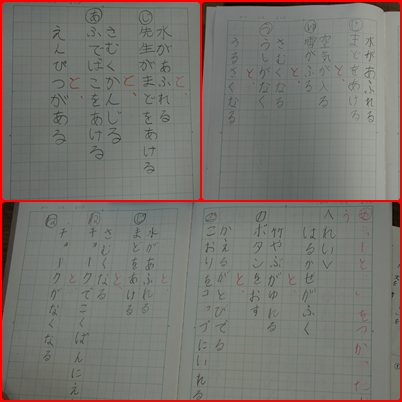 水があふれる
じ
先生がまどをあける
と、
さむくかんじる
あ
ふでばこをあける
と、
えんぴつがある
水があふれる
まどをあける
と、
空気が入る
雪がふる
と
さむくなる
うしがなく
と
うるさくなる
れい
はるかぜがふく
と
竹やぶがゆれる
の
ボタンをおす
と
かえるがとびでる
こおりをコップにいれる
水があふれる
まどをあける
と
さむくなる
チョークでこくばんにえ
と
チョークがなくなる